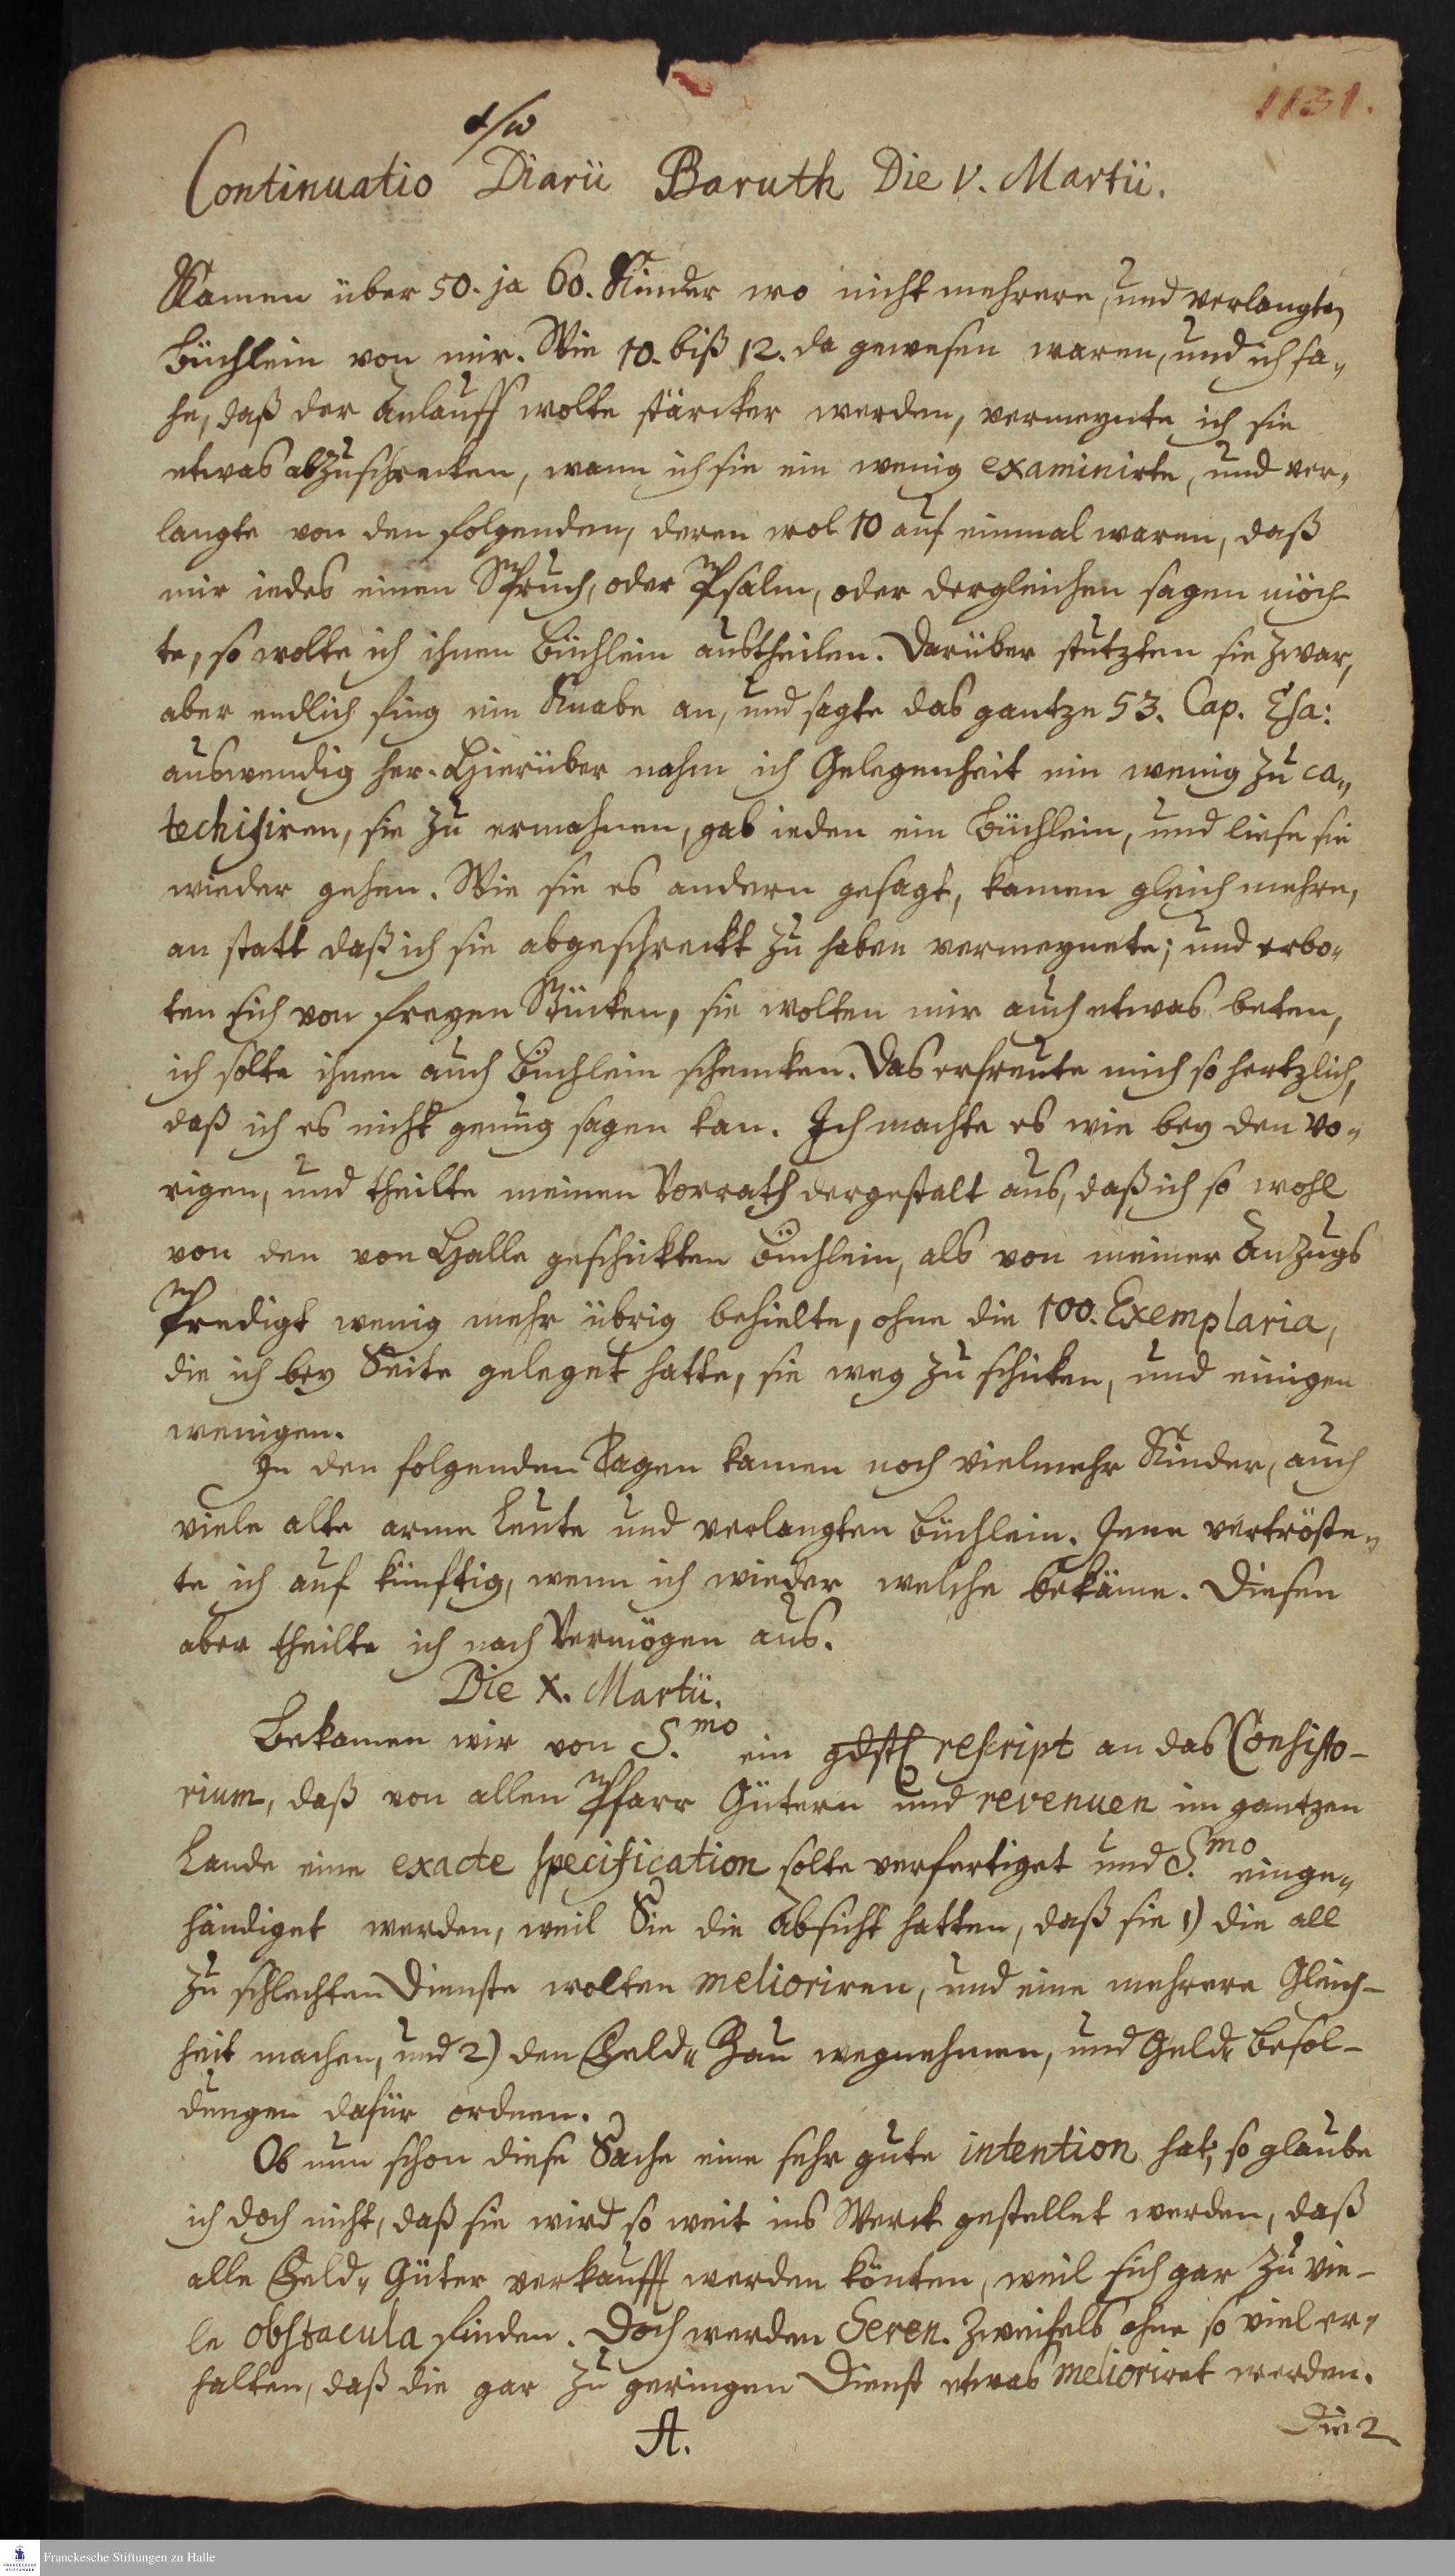 1131.
Continuatio Diarii Baruth Die V. Martii.
Kamen über 50. ja 60. Kinder wo nicht mehrere, und verlangten
Büchlein von mir. Wie 10. biß 12. da gewesen waren, und ich sa„
he, daß der Anlauff wolte stärcker werden, vermeynte ich sie
etwas abzuschrecken, wann ich sie ein wenig examinirte, und ver„
langte von den folgenden, deren wol 10 auf einmal waren, daß
mir iedes einen Spruch, oder Psalm, oder dergleichen sagen möch-
te, so wolte ich ihnen Büchlein austheilen. Darüber stutzten sie zwar,
aber endlich fing ein Knabe an, und sagte das gantze 53. Cap. Esa:
auswendig her. Hierüber nahm ich Gelegenheit ein wenig zu ca„
techisiren, sie zu ermahnen, gab ieden ein Büchlein, und liese sie
wieder gehen. Wie sie es andern gesagt, kamen gleich mehre,
an statt daß ich sie abgeschreckt zu haben vermeynete; und erbo„
ten sich von freyen Stücken, sie wolten mir auch etwas beten,
ich solte ihnen auch Büchlein schencken. Das erfreute mich so hertzlich,
daß ich es nicht genug sagen kan. Ich machte es wie bey den vo„
rigen, und theilte meinen Vorrath dergestalt aus, daß ich so wohl
von den von Halle geschickten Büchlein, als von meiner Anzugs
Predigt wenig mehr übrig behielte, ohne die 100. Exemplaria,
die ich bey Seite geleget hatte, sie weg zu schicken, und einigen
wenigen.
In den folgenden Tagen kamen noch vielmehr Kinder, auch
viele alte arme Leute und verlangten Büchlein. Jene vertröste„
te ich auf künftig, wenn ich wieder welche bekäme. Diesen
aber theilte ich nach Vermögen aus.
Die X. Martii.
Bekamen wir von S.mo ein gdstes rescript an das Consisto-
rium, daß von allen Pfarr Gütern und revenuen im gantzen
Lande eine exacte specification solte verfertiget und S.mo einge„
händiget werden, weil Sie die Absicht hatten, daß sie 1) die all
zu schlechten Dienste wolten melioriren, und eine mehrere Gleich-
heit machen, und 2) den Feld„ Bau wegnehmen, und Geld„ Besol-
dungen dafür ordnen.
Ob nun schon diese Sache eine sehr gute intention hat; so glaube
ich doch nicht, daß sie wird so weit ins Werck gestellet werden, daß
alle Feld„ Güter verkaufft werden könten, weil sich gar zu vie-
le obstacula finden. Doch werden Seren. Zweifels ohne so viel er„
halten, daß die gar zu geringen Dienst etwas melioriret werden.
A.
Franckesche Stiftungen zu Halle